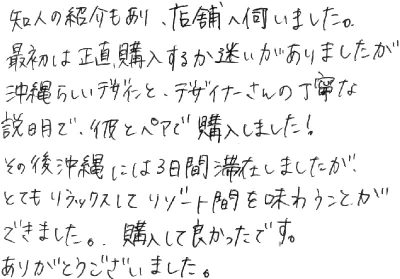 知人の紹介もあり、店舗へ伺いました。
最初は正直購入するか迷いがありましたが
沖縄らしいデザインと、デザイナーさんの丁寧な
説明で、彼とペアで購入しました!
その後沖縄には3日間滞在しましたが、
とてもリラックスしてリゾート間を味わうことが
できました。購入して良かったです。
ありがとうございました。